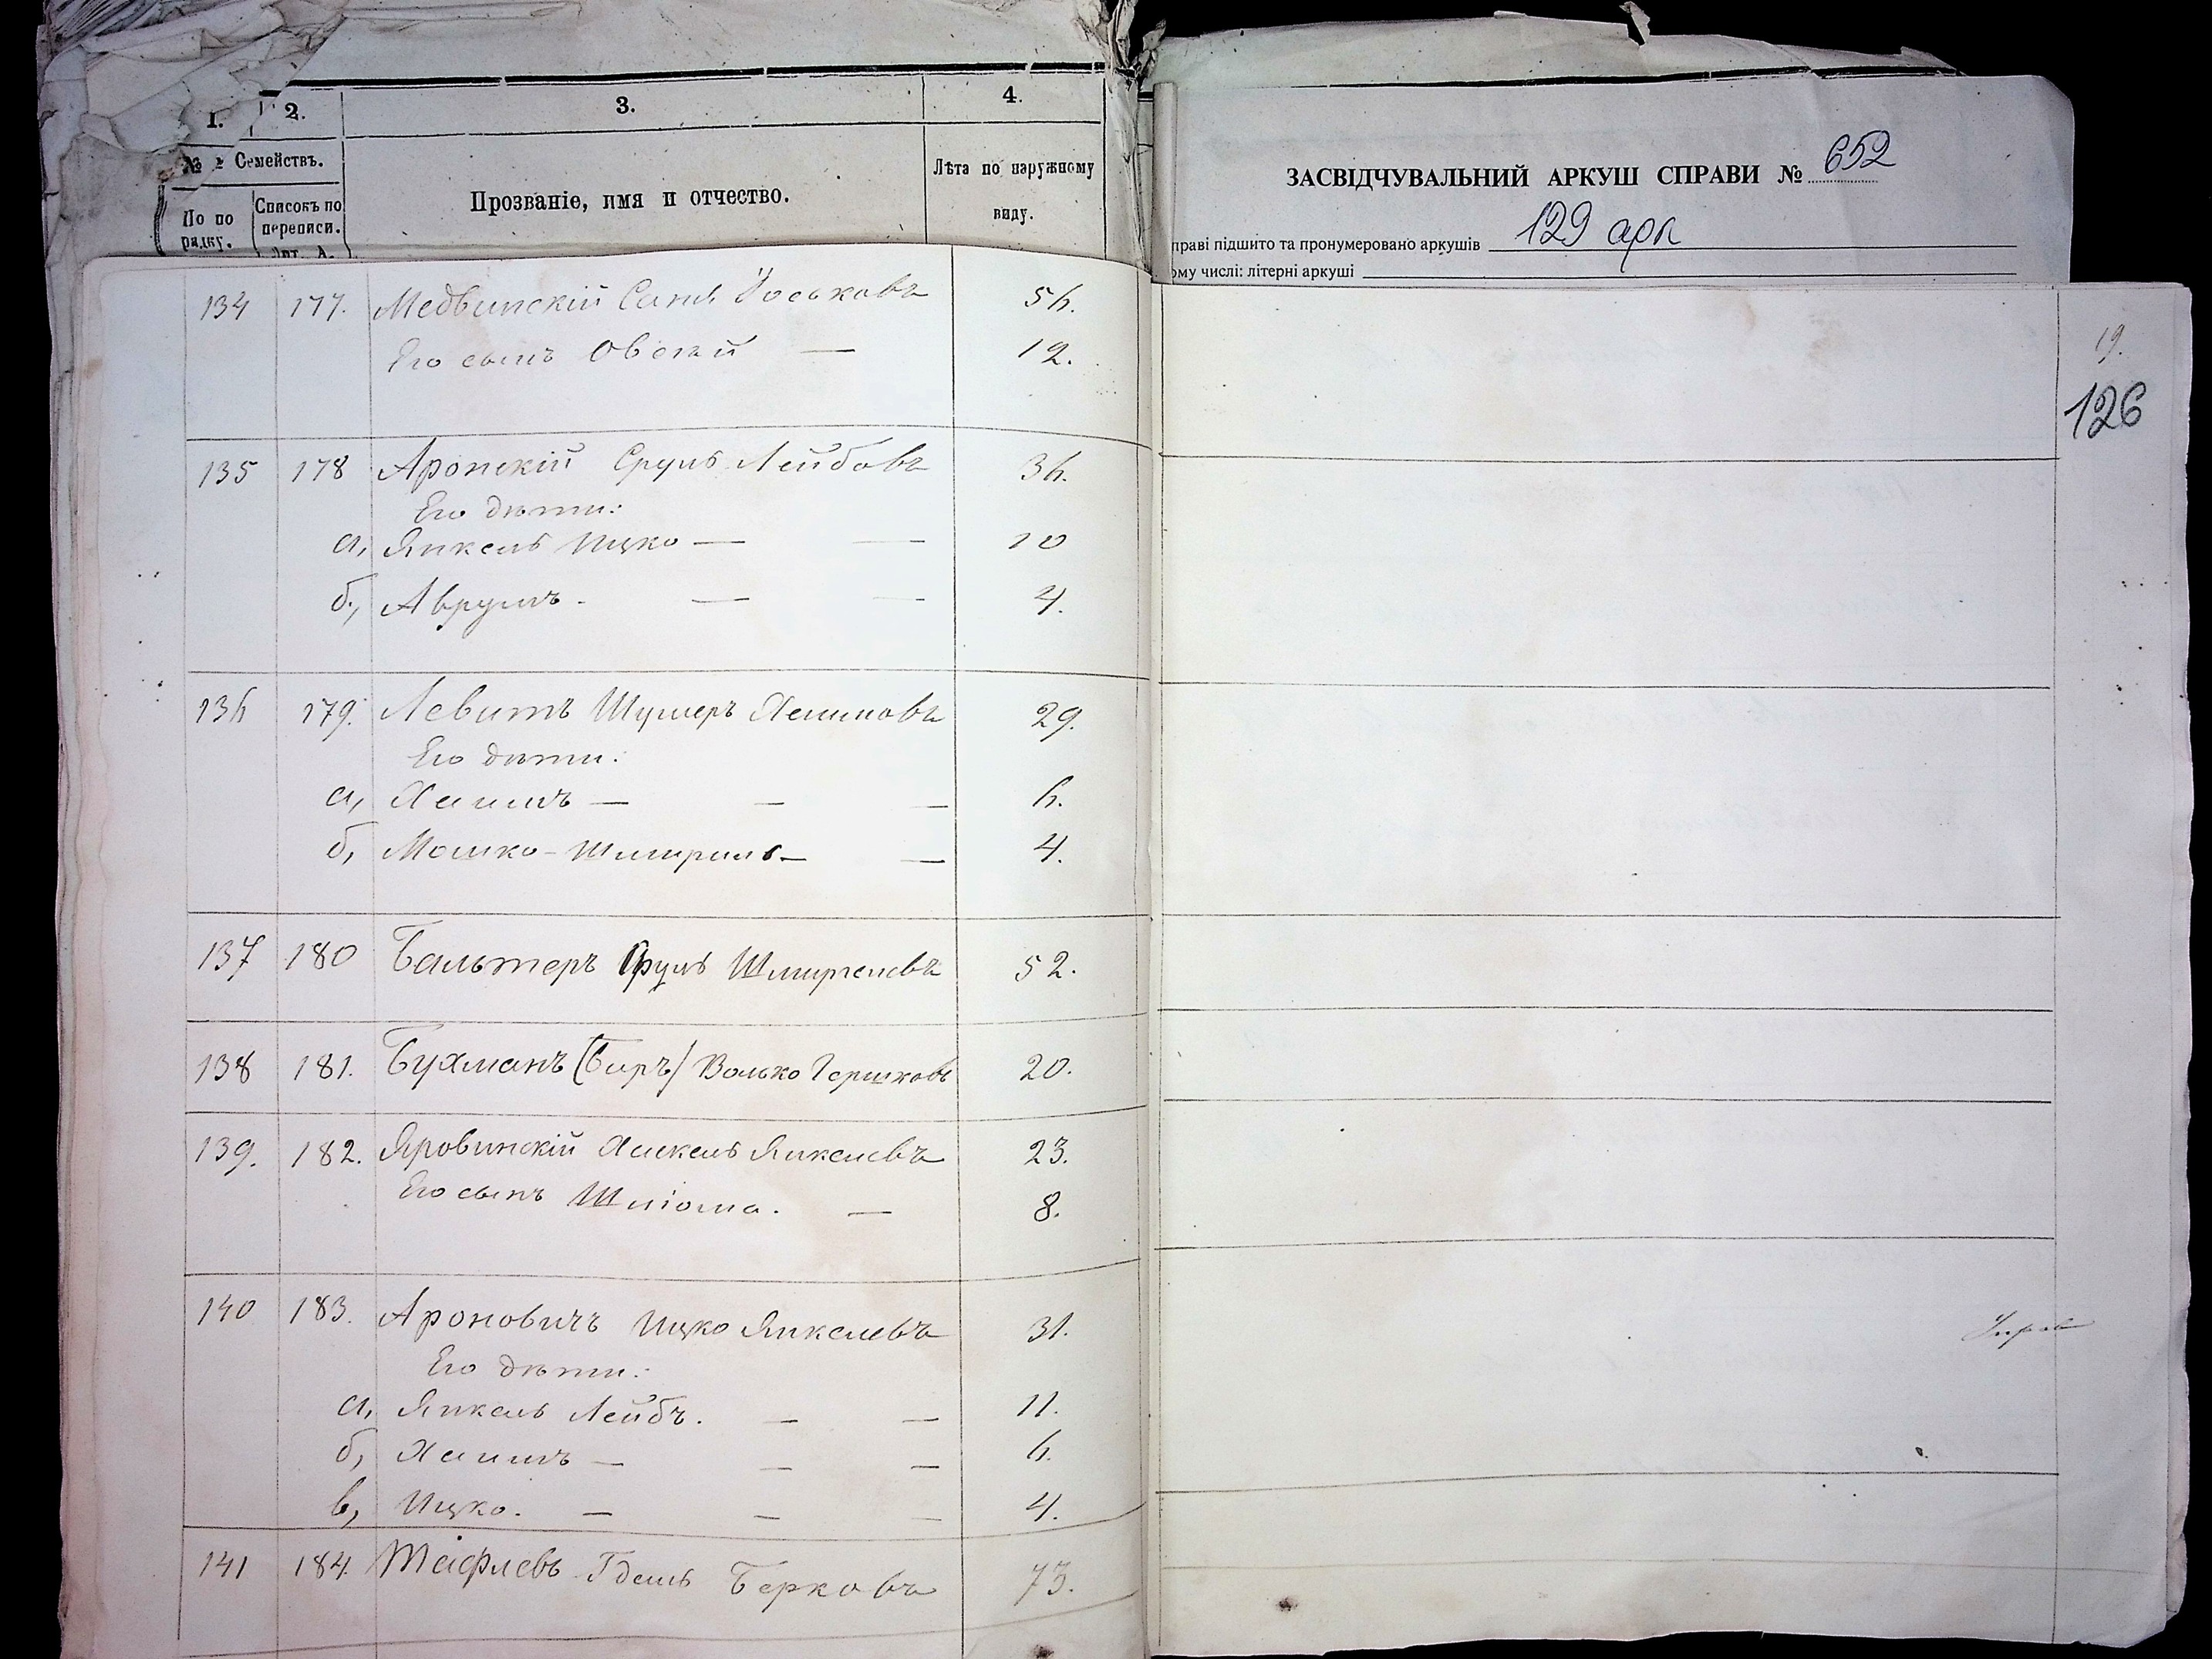 1. 2. 3. 4.
№ Семействъ.
По по рядку.
Списокъ по переписи. Лит. А.
Прозваніе, имя и отчество.
Лѣта по наружному виду.
ЗАСВІДЧУВАЛЬНИЙ АРКУШ СПРАВИ № 652
праві підшито та пронумеровано аркушів 129 арк
ому числі: літерні аркуші
19.
126
134 177. Медвинскій Іоськовъ 56.
Его сынъ Овсей — 12.
135 178 Аронскій Сруль Лейбовъ 36.
Его дѣти:
а, Янкель Ицко — — 10
б, Аврумъ. — — 4.
136 179. Левитъ Шумеръ Хаимовъ 29.
Его дѣти:
а, Хаимъ — — — 6.
б, Мошко - Шмириль — — 4.
137 180 Бальтеръ Сруль 52.
138 181. Бухманъ (Биръ) Волько Гершковъ 20.
139. 182. Яровинскій Хаскель Янкелевъ 23.
Его сынъ Шліома. — 8.
140 183. Ароновичъ Ицко Янкелевъ 31.
Его дѣти:
а, Янкель Лейбъ. — — 11.
б, Хаимъ — — — 6.
в, Ицко. — — — 4.
141 184. Тафлевъ Гдаль Берковъ 73.